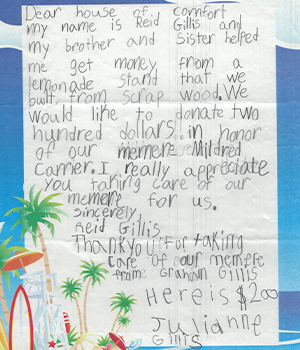 Dear house of comfort
my name is Reid Gillis and
my brother and Sister helped
me get money from a
lemonade stand that we
built from scrap wood. We
would like to donate two
hundred dollars in honor
of our memere Mildred
Carrier. I really appreciate
you taking care of our
memere for us.
sincerely,
Reid Gillis
Thankyou for taking
care of our memere
from: Graham Gillis
Here is $200
Julianne
Gillis